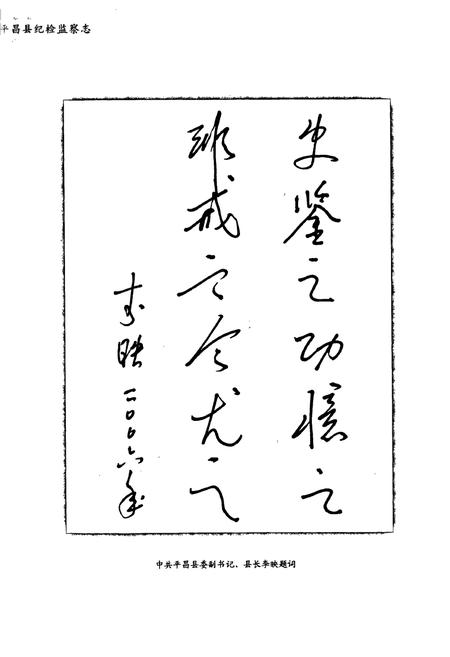 平昌县纪检监察志
史鉴之功憶之
戒之令尤之
李映二〇〇六年
中共平昌县委副书记、县长李映题词